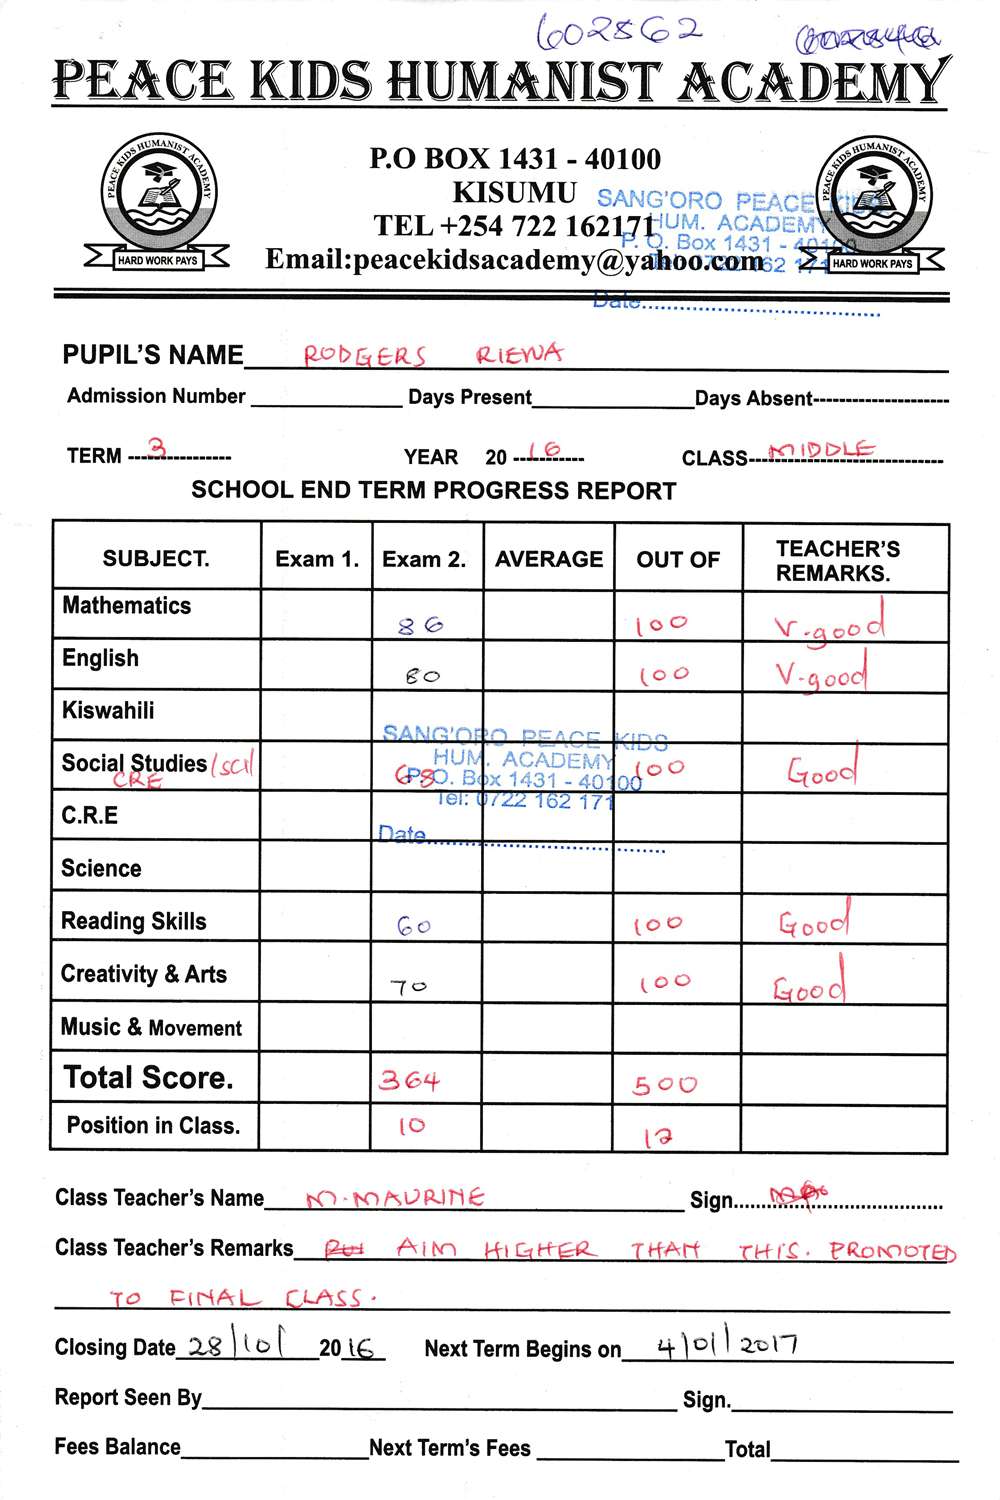 602862
PEACE KIDS HUMANIST ACADEMY
PEACE KIDS HUMANIST ACADEMY
HARD WORK PAYS
P.O BOX 1431 - 40100
KISUMU
TEL +254 722 162171
Email:peacekidsacademy@yahoo.com
PEACE KIDS HUMANIST ACADEMY
HARD WORK PAYS
SANG'ORO PEACE KIDS
HUM. ACADEMY
P. O. Box 1431 - 40100
Tel: 0722 162 171
Date
PUPIL'S NAME RODGERS RIEWA
Admission Number Days Present Days Absent
TERM 3 YEAR 20 16 CLASS MIDDLE
SCHOOL END TERM PROGRESS REPORT
SUBJECT. Exam 1. Exam 2. AVERAGE OUT OF TEACHER'S REMARKS.
Mathematics 86 100 V.good
English 80 100 V-good
Kiswahili
SANG'ORO PEACE KIDS
HUM. ACADEMY
P. O. Box 1431 - 40100
Tel: 0722 162 171
Date
Social Studies/sci CRE 68 100 Good
C.R.E
Science
Reading Skills 60 100 Good
Creativity & Arts 70 100 Good
Music & Movement
Total Score. 364 500
Position in Class. 10 12
Class Teacher's Name M. MAURINE Sign
Class Teacher's Remarks AIM HIGHER THAN THIS. PROMOTED
TO FINAL CLASS.
Closing Date 28/10/ 2016 Next Term Begins on 4/01/2017
Report Seen By Sign.
Fees Balance Next Term's Fees Total